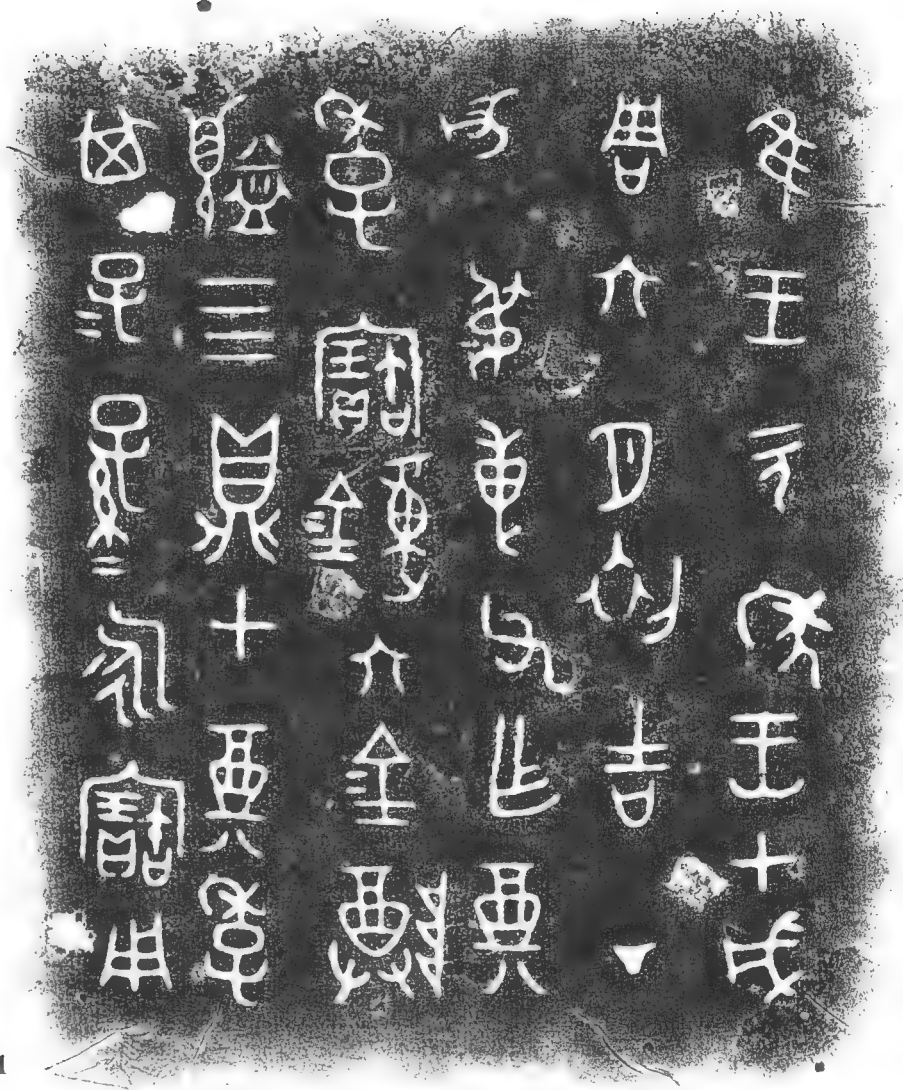 隹王元年王才成
周六月初吉丁
亥弔專父乍奠
季寶鐘六金尊
盨四鼎七奠季
其子子孫孫永寶用